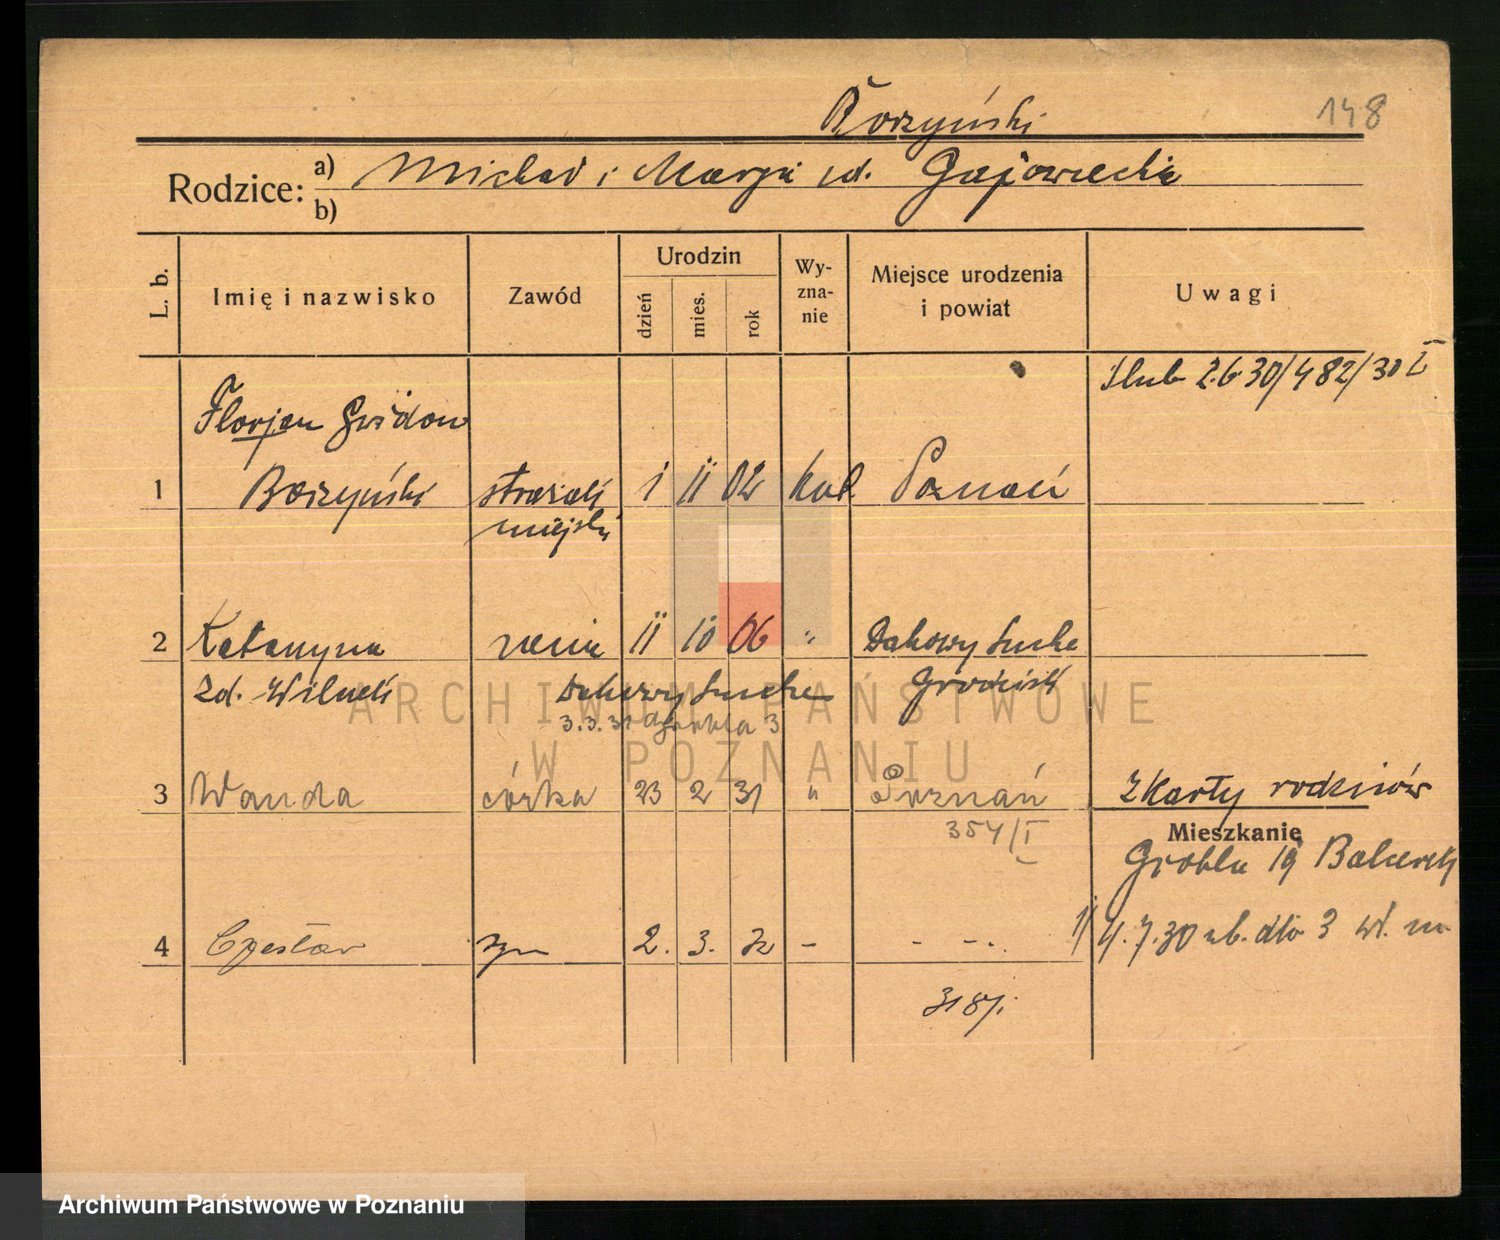 Borzyński
148
Rodzice:
a) Michał i Marya zd. Gajowiecka
b)
L. b.
Imię i nazwisko
Zawód
Urodzin
dzień
mies.
rok
Wy-
zna-
nie
Miejsce urodzenia
i powiat
Uwagi
Ślub 2.6.30/482/30 I
Florjan Gwidon
1 Borzyński strażak 1 II 02 kat Poznań
miejski
2 Katarzyna żona 11 10 06 " Dakowy Suche
zd. Wilnek Dakowy Suche Grodzisk
3.3.31 Grobla 3
3 Wanda córka 23 2 31 " Poznań
Z karty rodziców
354/I
Mieszkanie
Grobla 19
4 Czesław syn 2. 3. 32 - - -
1) 4.7.30 ub. dto 3 wł. m.
318/I
ARCHIWUM PAŃSTWOWE
W POZNANIU
Archiwum Państwowe w Poznaniu